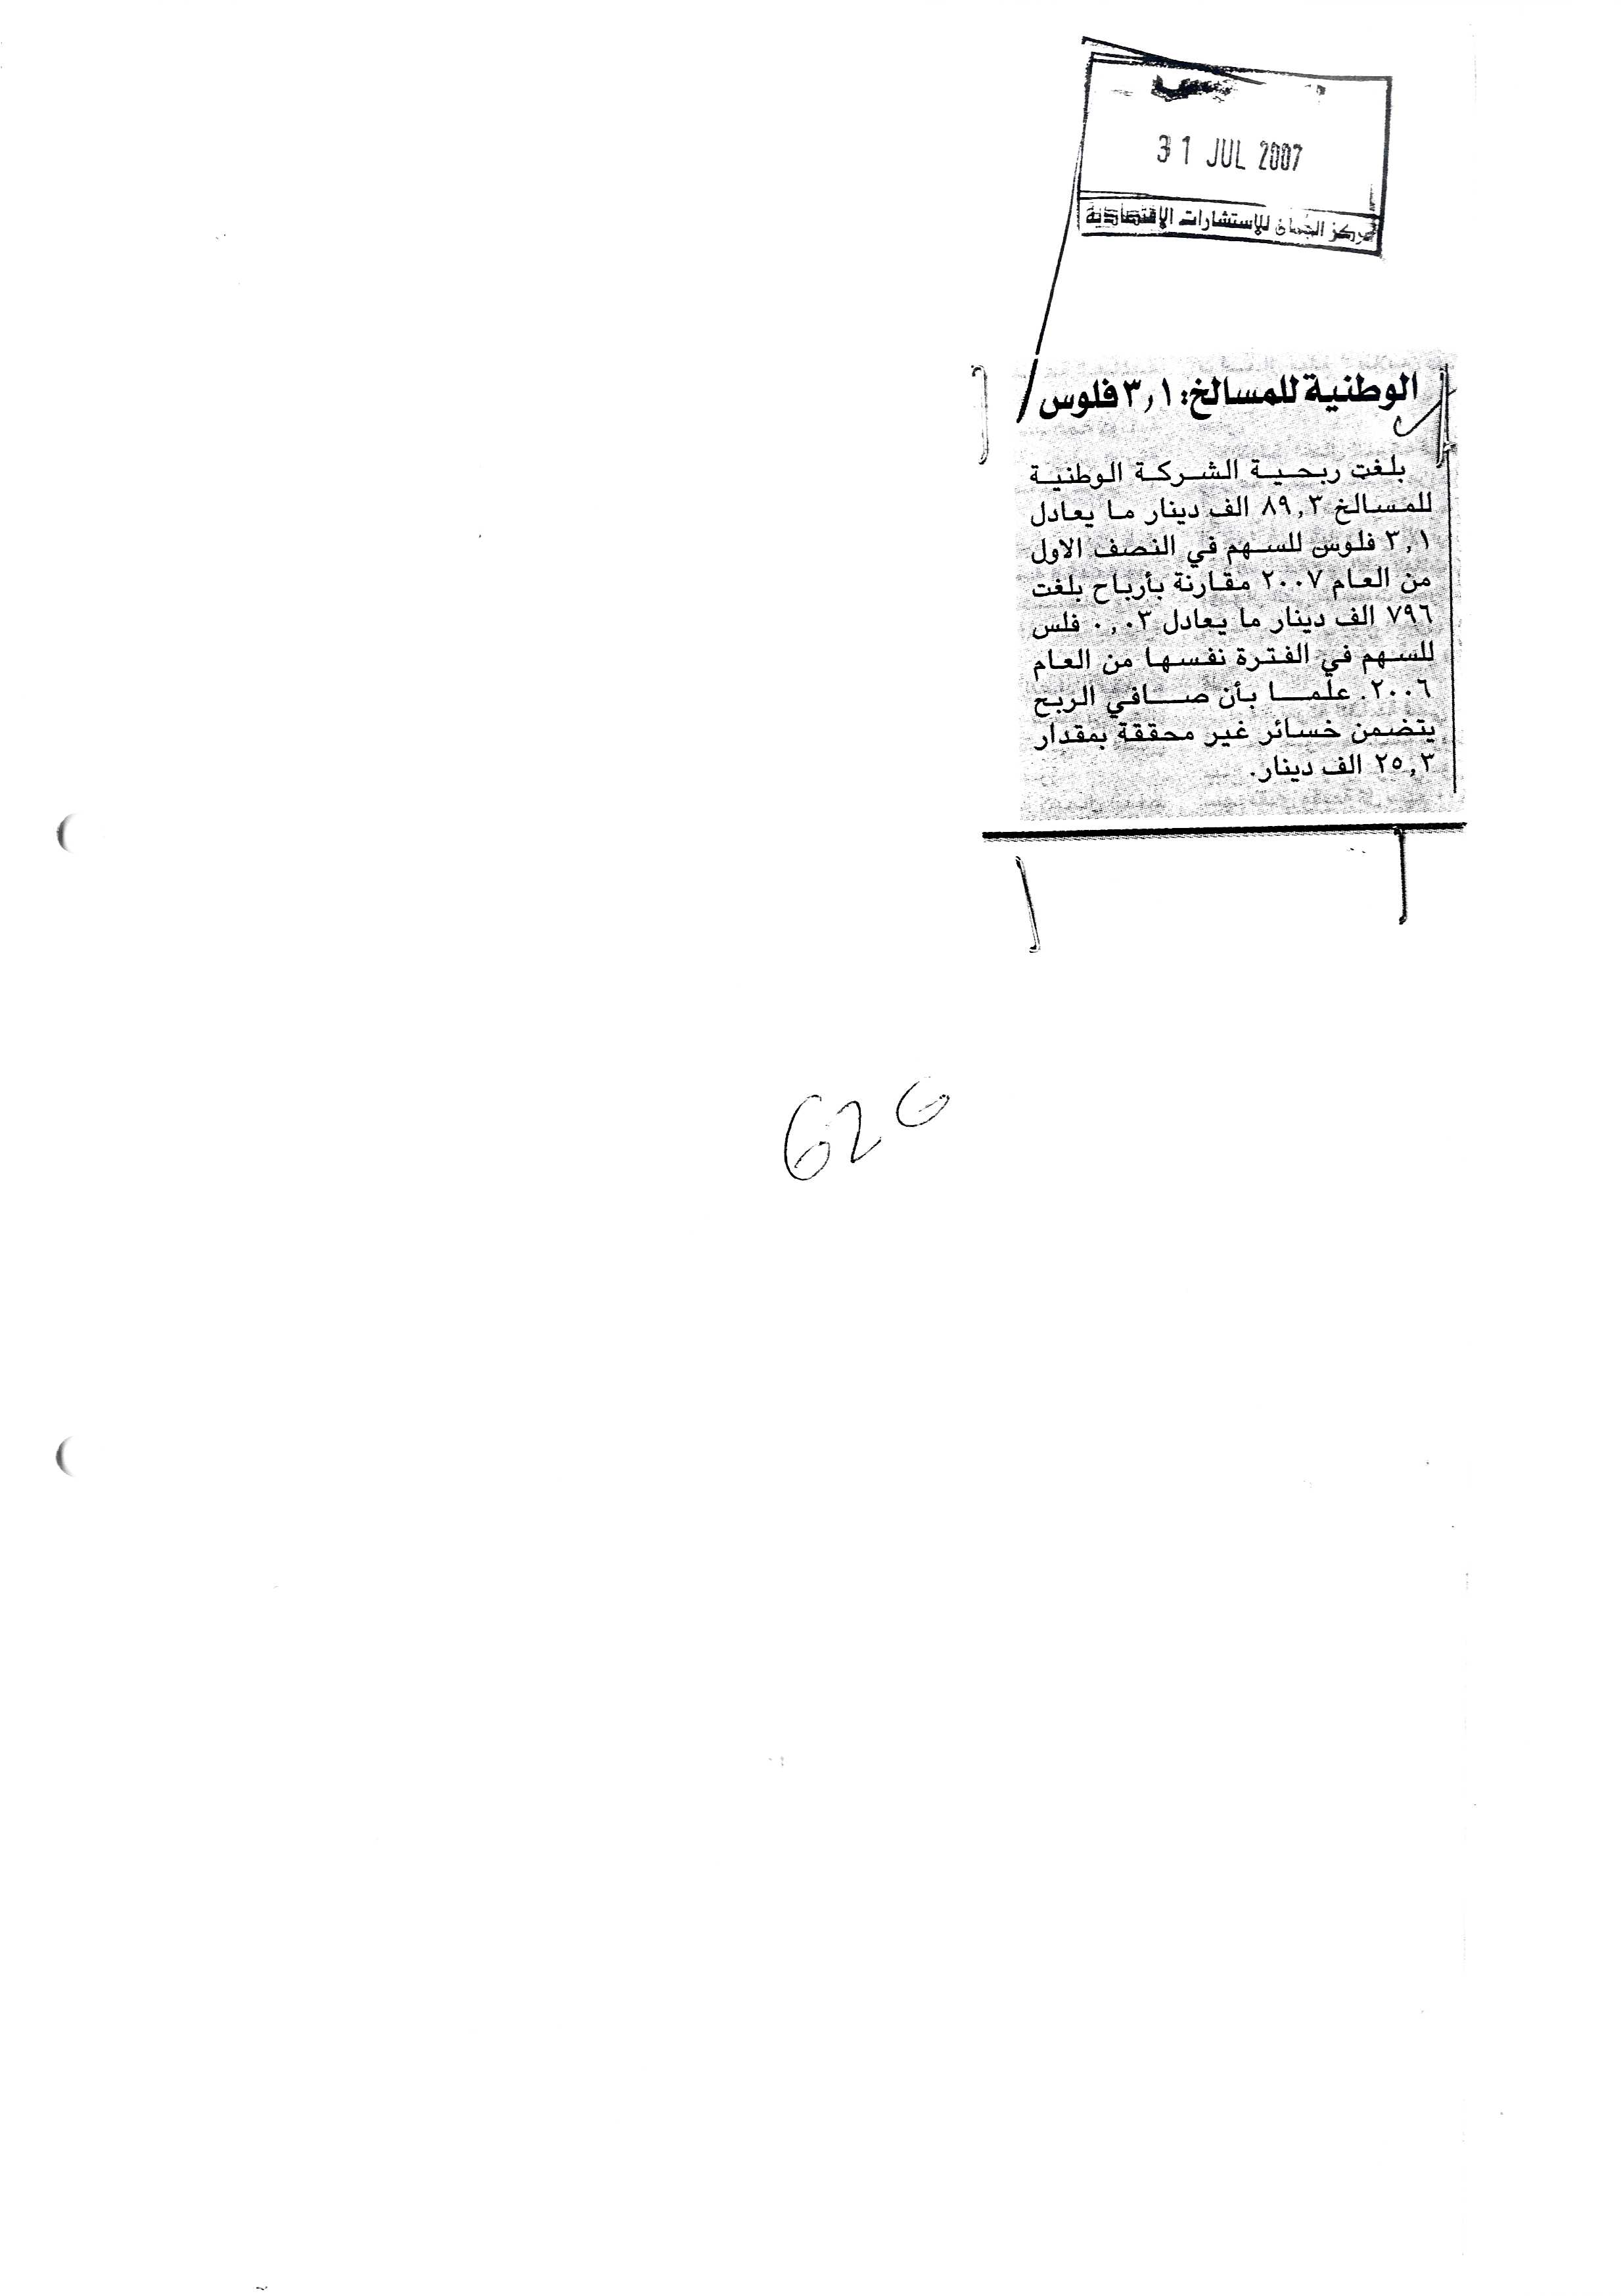 31 JUL 2007
مركز الجمان للإستشارات الإقتصادية
الوطنية للمسالخ: ٣,١ فلوس
بلغت ربحية الشركة الوطنية
للمسالخ ٨٩,٣ الف دينار ما يعادل
٣,١ فلوس للسهم في النصف الاول
من العام ٢٠٠٧ مقارنة بأرباح بلغت
٧٩٦ الف دينار ما يعادل ٠,٠٣ فلس
للسهم في الفترة نفسها من العام
٢٠٠٦. علما بأن صافي الربح
يتضمن خسائر غير محققة بمقدار
٢٥,٣ الف دينار.